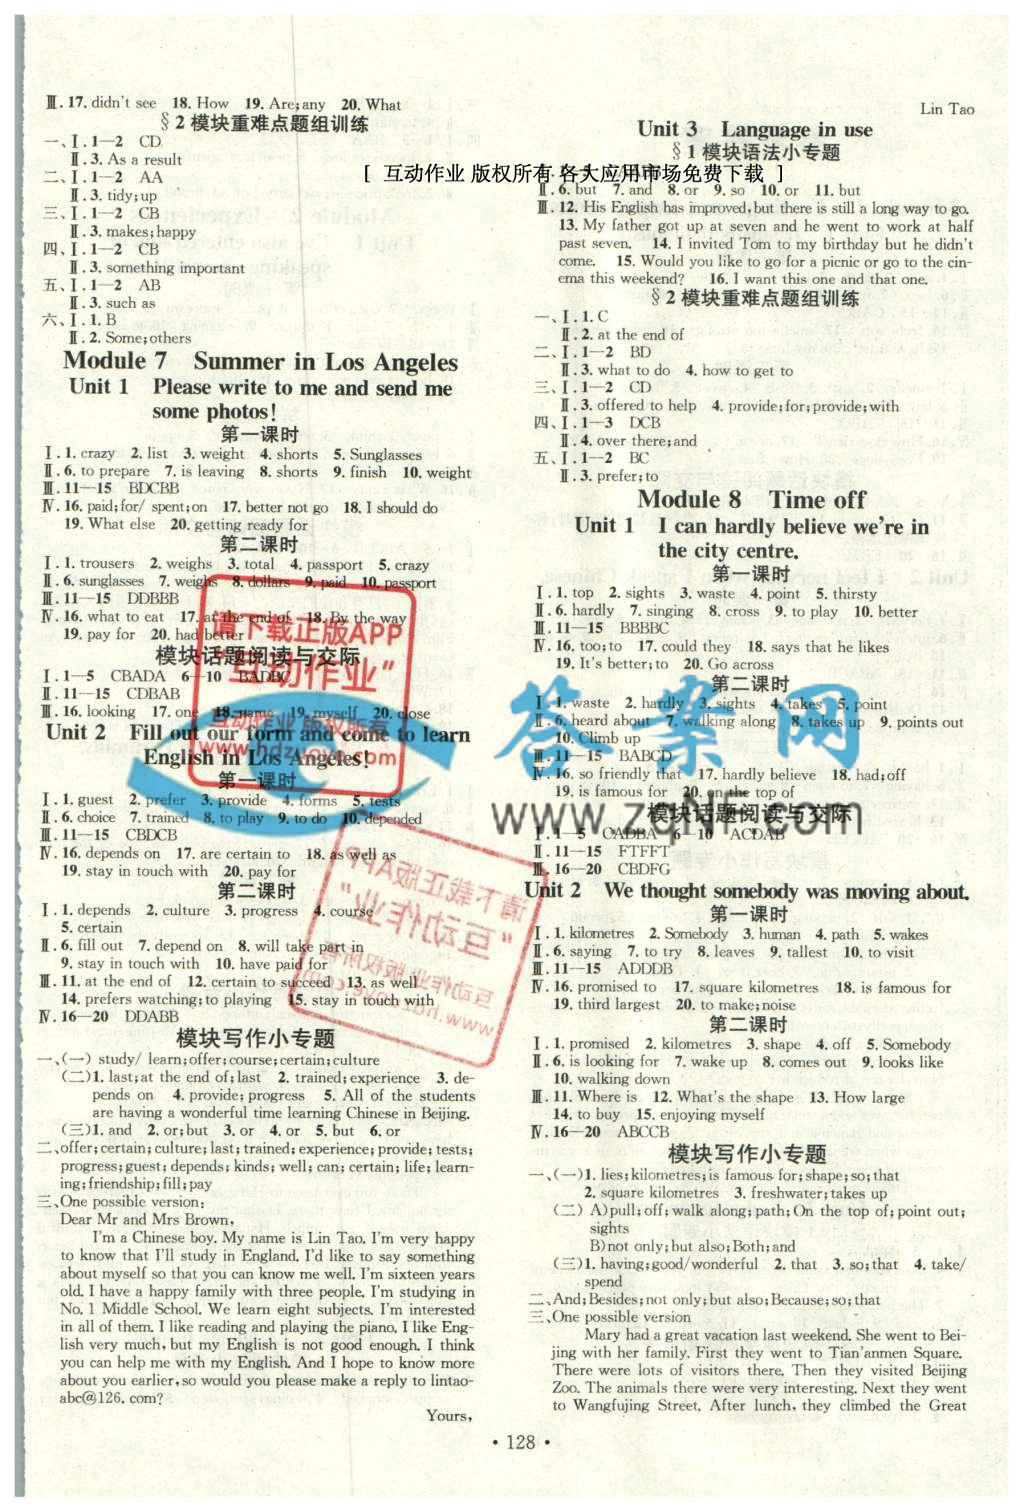 Ⅲ. 17. didn't see 18. How 19. Are; any 20. What
§2 模块重难点题组训练
一、Ⅰ. 1—2 CD
Ⅱ. 3. As a result
二、Ⅰ. 1—2 AA
Ⅱ. 3. tidy; up
三、Ⅰ. 1—2 CB
Ⅱ. 3. makes; happy
四、Ⅰ. 1—2 CB
Ⅱ. 3. something important
五、Ⅰ. 1—2 AB
Ⅱ. 3. such as
六、Ⅰ. 1. B
Ⅱ. 2. Some; others
Module 7 Summer in Los Angeles
Unit 1 Please write to me and send me
some photos!
第一课时
Ⅰ. 1. crazy 2. list 3. weight 4. shorts 5. Sunglasses
Ⅱ. 6. to prepare 7. is leaving 8. shorts 9. finish 10. weight
Ⅲ. 11—15 BDCBB
Ⅳ. 16. paid; for/ spent; on 17. better not go 18. I should do
19. What else 20. getting ready for
第二课时
Ⅰ. 1. trousers 2. weighs 3. total 4. passport 5. crazy
Ⅱ. 6. sunglasses 7. weighs 8. dollars 9. paid 10. passport
Ⅲ. 11—15 DDBBB
Ⅳ. 16. what to eat 17. at the end of 18. By the way
19. pay for 20. had better
模块话题阅读与交际
Ⅰ. 1—5 CBADA 6—10 BADBC
Ⅱ. 11—15 CDBAB
Ⅲ. 16. looking 17. one 18. name 19. myself 20. close
Unit 2 Fill out our form and come to learn
English in Los Angeles!
第一课时
Ⅰ. 1. guest 2. prefer 3. provide 4. forms 5. tests
Ⅱ. 6. choice 7. trained 8. to play 9. to do 10. depended
Ⅲ. 11—15 CBDCB
Ⅳ. 16. depends on 17. are certain to 18. as well as
19. stay in touch with 20. pay for
第二课时
Ⅰ. 1. depends 2. culture 3. progress 4. course
5. certain
Ⅱ. 6. fill out 7. depend on 8. will take part in
9. stay in touch with 10. have paid for
Ⅲ. 11. at the end of 12. certain to succeed 13. as well
14. prefers watching; to playing 15. stay in touch with
Ⅳ. 16—20 DDABB
模块写作小专题
一、(一) study/ learn; offer; course; certain; culture
(二)1. last; at the end of; last 2. trained; experience 3. de-
pends on 4. provide; progress 5. All of the students
are having a wonderful time learning Chinese in Beijing.
(三)1. and 2. or; but 3. or 4. or 5. but 6. or
二、offer; certain; culture; last; trained; experience; provide; tests;
progress; guest; depends; kinds; well; can; certain; life; learn-
ing; friendship; fill; pay
三、One possible version:
Dear Mr and Mrs Brown,
I'm a Chinese boy. My name is Lin Tao. I'm very happy
to know that I'll study in England. I'd like to say something
about myself so that you can know me well. I'm sixteen years
old. I have a happy family with three people. I'm studying in
No. 1 Middle School. We learn eight subjects. I'm interested
in all of them. I like reading and playing the piano. I like Eng-
lish very much, but my English is not good enough. I think
you can help me with my English. And I hope to know more
about you earlier, so would you please make a reply to lintao-
abc@126.com?
Yours,
Lin Tao
Unit 3 Language in use
§1 模块语法小专题
[ 互动作业 版权所有 各大应用市场免费下载 ]
Ⅱ. 6. but 7. and 8. or 9. so 10. or 11. but
Ⅲ. 12. His English has improved, but there is still a long way to go.
13. My father got up at seven and he went to work at half
past seven. 14. I invited Tom to my birthday but he didn't
come. 15. Would you like to go for a picnic or go to the cin-
ema this weekend? 16. I want this one and that one.
§2 模块重难点题组训练
一、Ⅰ. 1. C
Ⅱ. 2. at the end of
二、Ⅰ. 1—2 BD
Ⅱ. 3. what to do 4. how to get to
三、Ⅰ. 1—2 CD
Ⅱ. 3. offered to help 4. provide; for; provide; with
四、Ⅰ. 1—3 DCB
Ⅱ. 4. over there; and
五、Ⅰ. 1—2 BC
Ⅱ. 3. prefer; to
Module 8 Time off
Unit 1 I can hardly believe we're in
the city centre.
第一课时
Ⅰ. 1. top 2. sights 3. waste 4. point 5. thirsty
Ⅱ. 6. hardly 7. singing 8. cross 9. to play 10. better
Ⅲ. 11—15 BBBBC
Ⅳ. 16. too; to 17. could they 18. says that he likes
19. It's better; to 20. Go across
第二课时
Ⅰ. 1. waste 2. hardly 3. sights 4. takes 5. point
Ⅱ. 6. heard about 7. walking along 8. takes up 9. points out
10. Climb up
Ⅲ. 11—15 BABCD
Ⅳ. 16. so friendly that 17. hardly believe 18. had; off
19. is famous for 20. on the top of
模块话题阅读与交际
Ⅰ. 1—5 CADBA 6—10 ACDAB
Ⅱ. 11—15 FTFFT
Ⅲ. 16—20 CBDFG
Unit 2 We thought somebody was moving about.
第一课时
Ⅰ. 1. kilometres 2. Somebody 3. human 4. path 5. wakes
Ⅱ. 6. saying 7. to try 8. leaves 9. tallest 10. to visit
Ⅲ. 11—15 ADDDB
Ⅳ. 16. promised to 17. square kilometres 18. is famous for
19. third largest 20. to make; noise
第二课时
Ⅰ. 1. promised 2. kilometres 3. shape 4. off 5. Somebody
Ⅱ. 6. is looking for 7. wake up 8. comes out 9. looks like
10. walking down
Ⅲ. 11. Where is 12. What's the shape 13. How large
14. to buy 15. enjoying myself
Ⅳ. 16—20 ABCCB
模块写作小专题
一、(一)1. lies; kilometres; is famous for; shape; so; that
2. square kilometres 3. freshwater; takes up
(二) A)pull; off; walk along; path; On the top of; point out;
sights
B)not only; but also; Both; and
(三)1. having; good/wonderful 2. that 3. so; that 4. take/
spend
二、And; Besides; not only; but also; Because; so; that
三、One possible version
Mary had a great vacation last weekend. She went to Bei-
jing with her family. First they went to Tian'anmen Square.
There were lots of visitors there. Then they visited Beijing
Zoo. The animals there were very interesting. Next they went
to Wangfujing Street. After lunch, they climbed the Great
• 128 •
请下载正版APP
"互动作业"
互动作业 版权所有
www.hdzuoye.com
请下载正版APP
"互动作业"
互动作业 版权所有
www.hdzuoye.com
答案网
www.zqnf.com